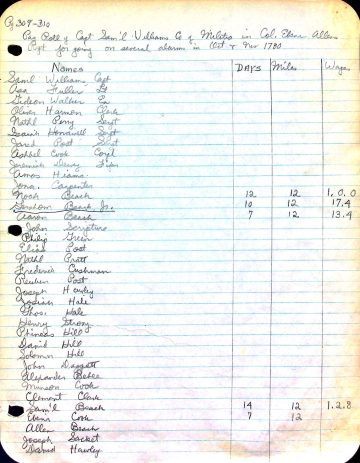 Pg 309-310
Pay Roll of Capt Sam'l Williams Co of Militia in Col. Eben. Allens
Regt for going on several alarms in Oct & Nov 1780
Names DAYS Miles Wages
Saml Williams Capt
Asa Fuller Lt
Gideon Walker En
Oliver Harmon Clerk
Nathl Perry Sergt
Isaiah Honawell Sergt
Jared Post Sergt
Ashbel Cook Corpl
Jeremiah Dewey
Amos
Jona. Carpenter
Noah Beach 12 12 1.0.0
Gershom Beach, Jr. 10 12 17.4
Aaron Beach 7 12 13.4
John Scripture
Philip Green
Elias Post
Nathl Pratt
Frederick Cushman
Reuben Post
Joseph Hawley
Josiah Hale
Thos Hale
Henry Strong
Phineas Hill
David Hill
Solomon Hill
John Daggett
Alexander Bebee
Munson Cook
Clement Clark
Sam'l Beach 14 12 1.2.8
Cook 7 12
Allen Beach
Joseph Sacket
David Hawley